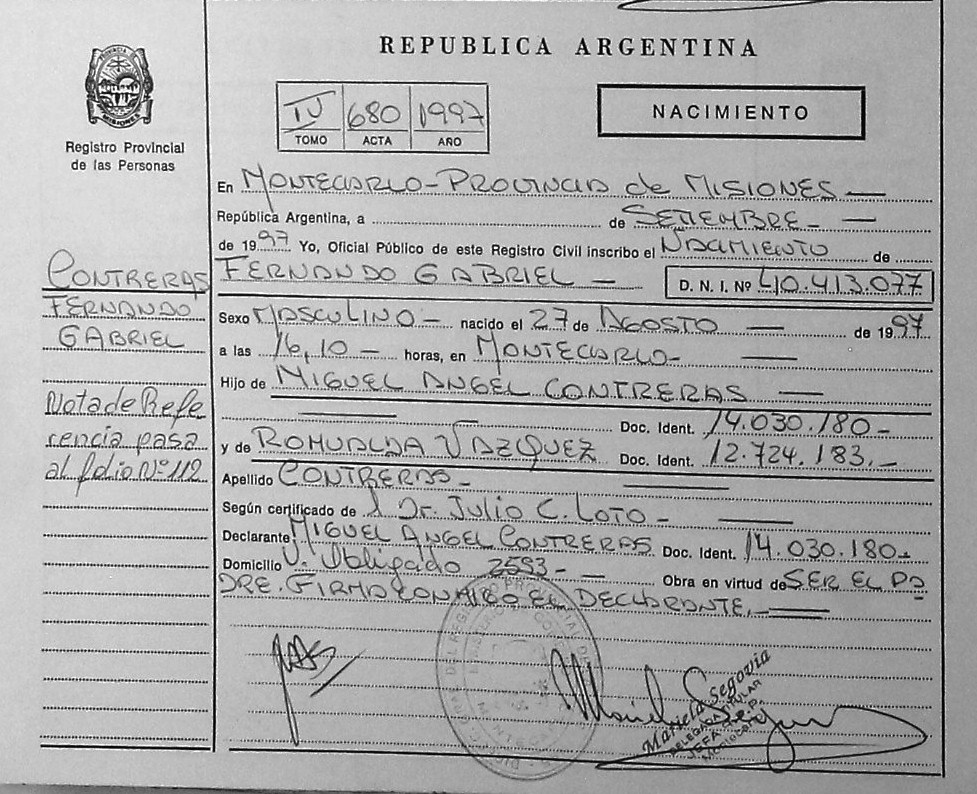 REPUBLICA ARGENTINA
PROVINCIA DE
MISIONES
Registro Provincial
de las Personas
IV 680 1997
TOMO ACTA AÑO
NACIMIENTO
En MONTECARLO - PROVINCIA de MISIONES —
República Argentina, a de SETIEMBRE - —
de 1997 Yo, Oficial Público de este Registro Civil inscribo el NACIMIENTO de
FERNANDO GABRIEL — D. N. I. Nº 40.413.077
Sexo MASCULINO - nacido el 27 de AGOSTO — de 1997
a las 16,10 - horas, en MONTECARLO - —
Hijo de MIGUEL ANGEL CONTRERAS —
Doc. Ident. 14.030.180 -
y de ROMUALDA VAZQUEZ Doc. Ident. 12.724.183. -
Apellido CONTRERAS - —
Según certificado de Dr. Julio C. LOTO - —
Declarante MIGUEL ANGEL CONTRERAS Doc. Ident. 14.030.180 -
Domicilio Obligado 2593 - — Obra en virtud de SER EL PA
DRE. FIRMA CONMIGO EL DECLARANTE. —
CONTRERAS
FERNANDO
GABRIEL
Nota de Refe
rencia pasa
al folio Nº 112
Mariela Segovia